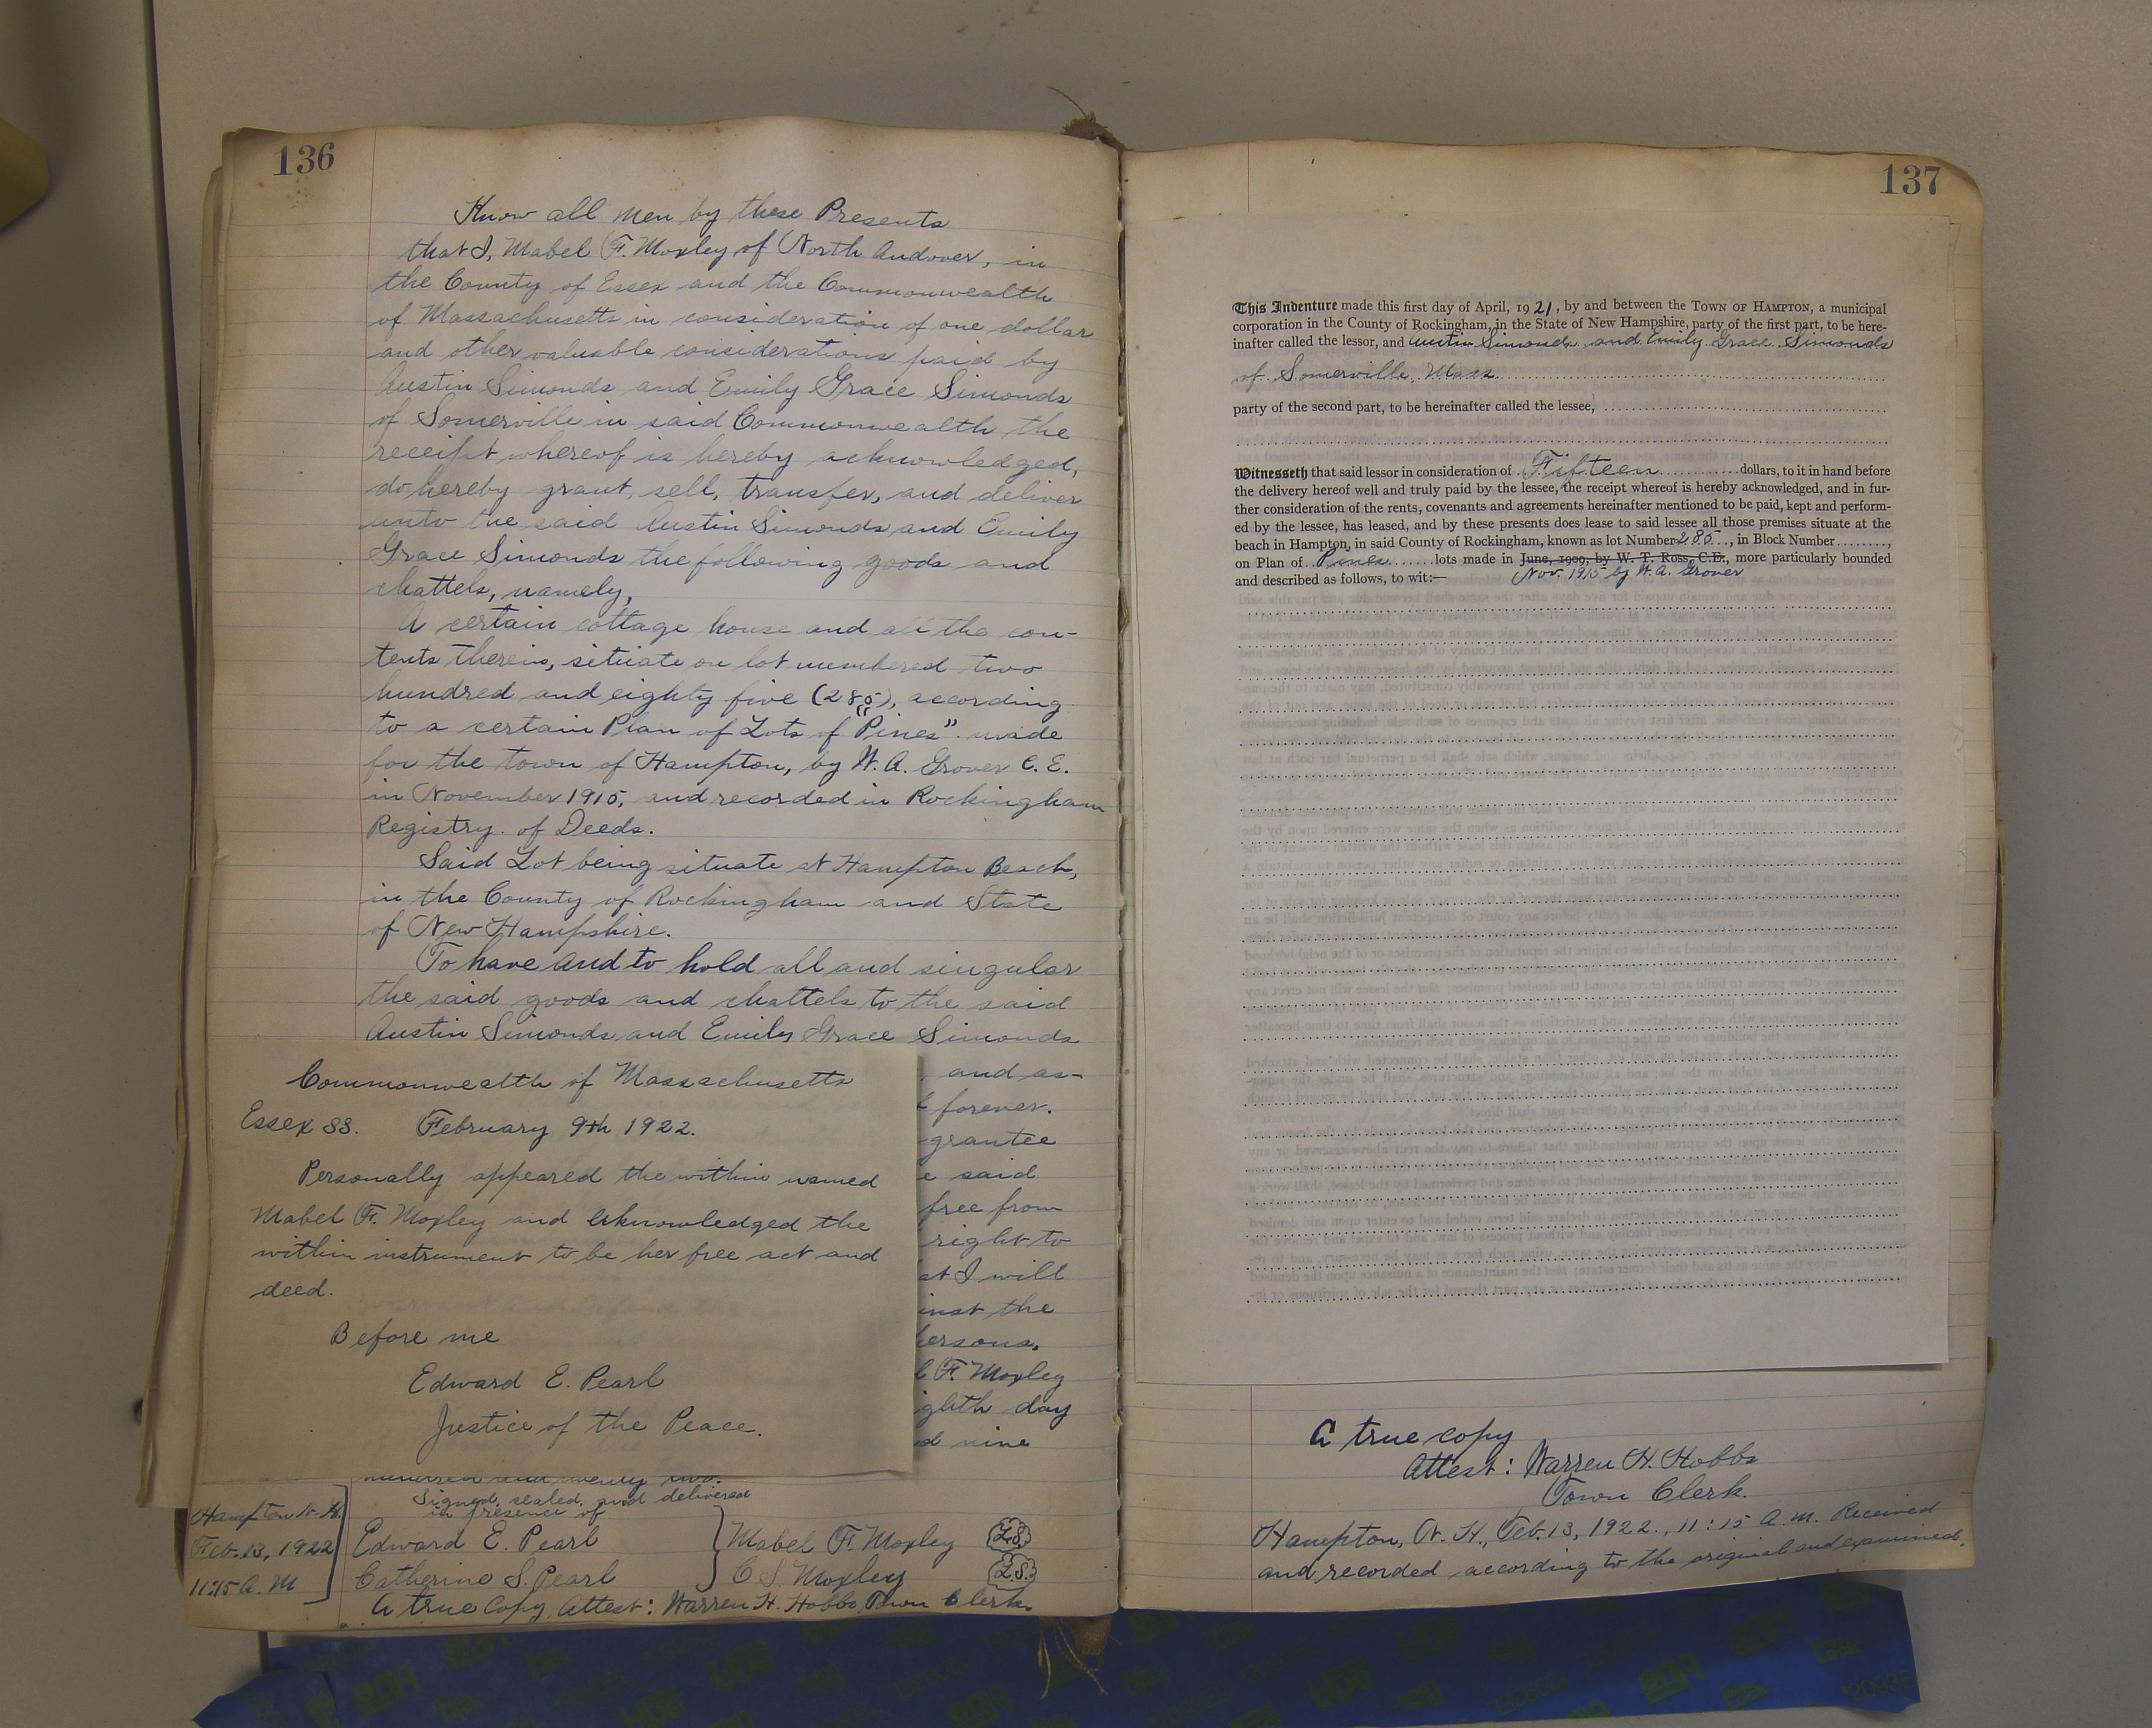 136
Know all men by these Presents
that I, Mabel F. Moxley of North Andover, in
the County of Essex and the Commonwealth
of Massachusetts in consideration of one dollar
and other valuable considerations paid by
Austin Simonds and Emily Grace Simonds
of Somerville in said Commonwealth the
receipt whereof is hereby acknowledged,
do hereby grant, sell, transfer, and deliver
unto the said Austin Simonds and Emily
Grace Simonds the following goods and
chattels, namely,
A certain cottage house and all the con-
tents therein, situate on lot numbered two
hundred and eighty five (285), according
to a certain Plan of Lots of "Pines" made
for the town of Hampton, by W. A. Grover C. E.
in November 1915, and recorded in Rockingham
Registry of Deeds.
Said Lot being situate at Hampton Beach,
in the County of Rockingham and State
of New Hampshire.
To have and to hold all and singular
the said goods and chattels to the said
Austin Simonds and Emily Grace Simonds
and as-
forever.
grantee
said
free from
right to
I will
the
F. Moxley
day
nine
Commonwealth of Massachusetts
Essex SS. February 9th 1922.
Personally appeared the within named
Mabel F. Moxley and acknowledged the
within instrument to be her free act and
deed.
Before me
Edward E. Pearl
Justice of the Peace.
hundred and twenty two.
Signed, sealed, and delivered
in presence of
Edward E. Pearl
Catherine S. Pearl
Mabel F. Moxley L.S.
C. S. Moxley L.S.
Hampton N.H.
Feb. 13, 1922
11:15 A. M
A true Copy, Attest: Warren H. Hobbs, Town Clerk.
137
This Indenture made this first day of April, 1921, by and between the TOWN OF HAMPTON, a municipal
corporation in the County of Rockingham, in the State of New Hampshire, party of the first part, to be here-
inafter called the lessor, and Austin Simonds and Emily Grace Simonds
of Somerville, Mass.
party of the second part, to be hereinafter called the lessee,
Witnesseth that said lessor in consideration of Fifteen dollars, to it in hand before
the delivery hereof well and truly paid by the lessee, the receipt whereof is hereby acknowledged, and in fur-
ther consideration of the rents, covenants and agreements hereinafter mentioned to be paid, kept and perform-
ed by the lessee, has leased, and by these presents does lease to said lessee all those premises situate at the
beach in Hampton, in said County of Rockingham, known as lot Number 285, in Block Number ........,
on Plan of Pines lots made in June, 1909, by W. T. Ross, C.E., more particularly bounded
and described as follows, to wit:— Nov. 1915 by W. A. Grover
A true copy
Attest: Warren H. Hobbs
Town Clerk.
Hampton, N. H., Feb. 13, 1922., 11:15 A.M. Received
and recorded according to the original and examined.